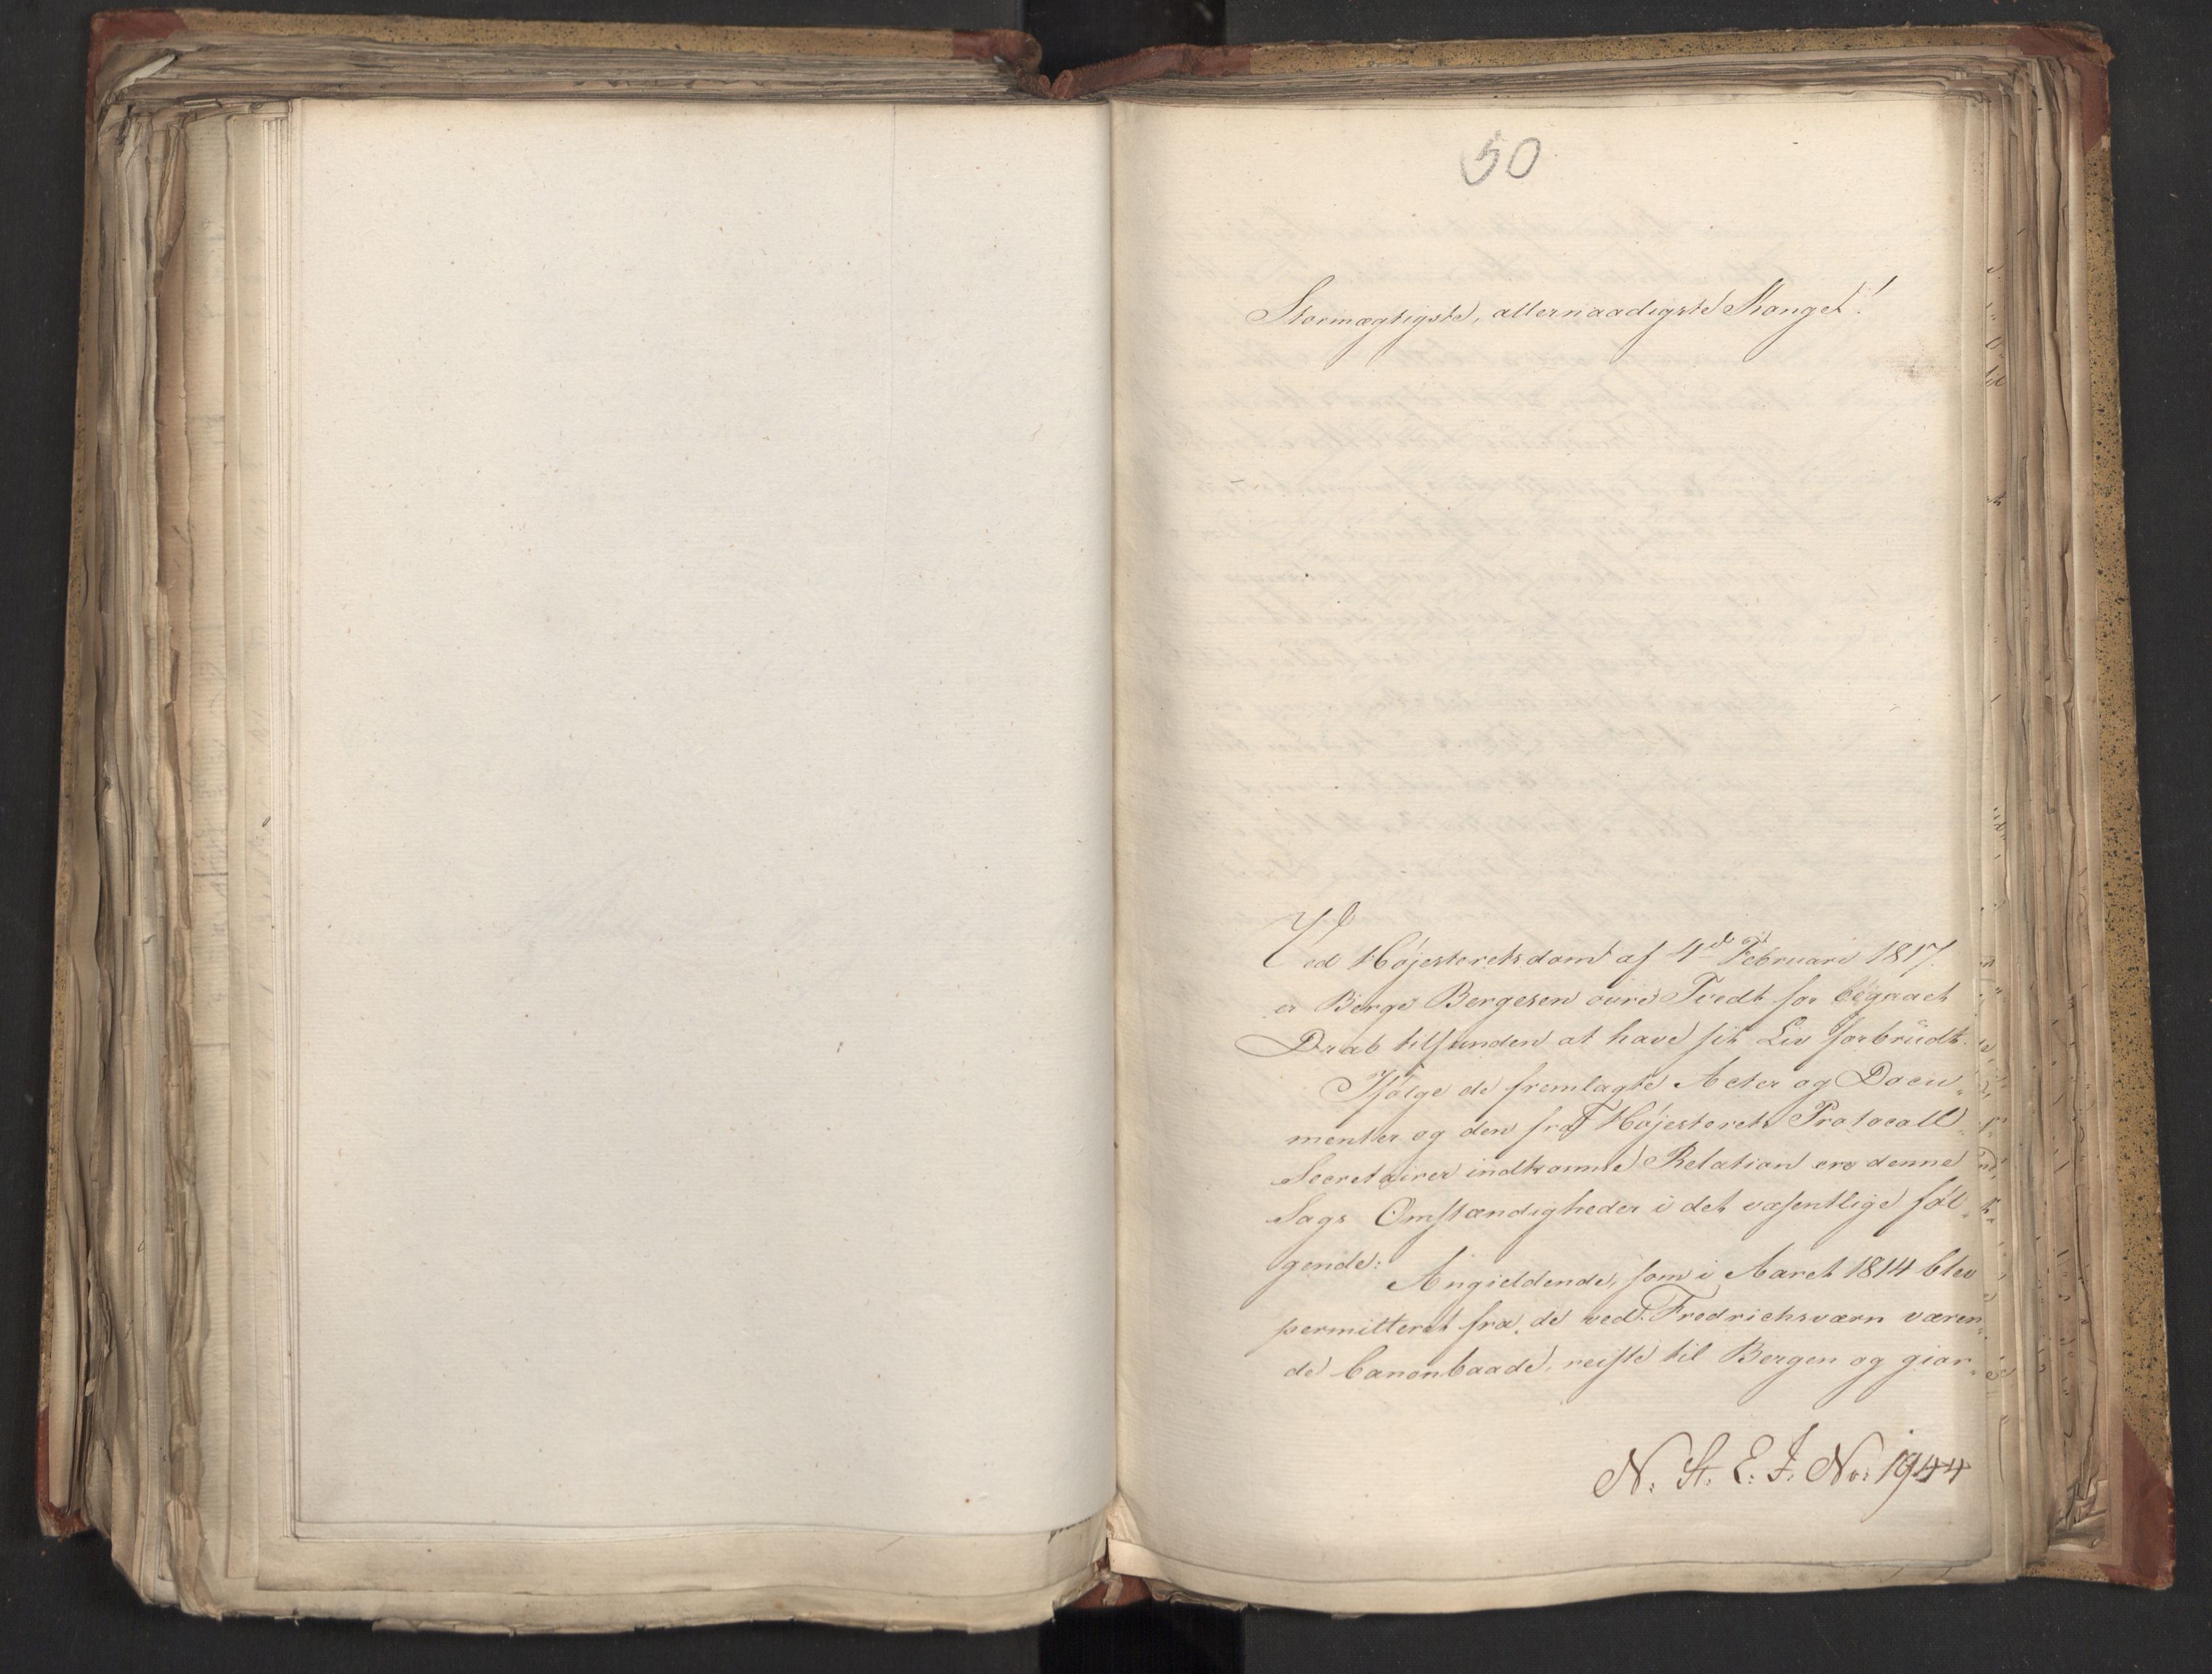 50
Stormægtigste, allernaadigste Konge!
Ved Høiesteretsdom af 4de Februari 1817.
er Børge Børgesen øvre Tvedt for begaaet
Drab tilfunden at have sit Liv forbrudt.
Ifølge de fremlagte Acter og Docu-
menter og den fra Høiesterets Protocoll-
Secretairer indkomne Relation ere denne
Sags Omstændigheder i det væsentlige føl-
gende:
Angieldende, som i Aaret 1814 blev
permitteret fra de ved Fredrichsværn væren-
de Canonbaade, reiste til Bergen og gior-
N. St. E. J. No: 1944